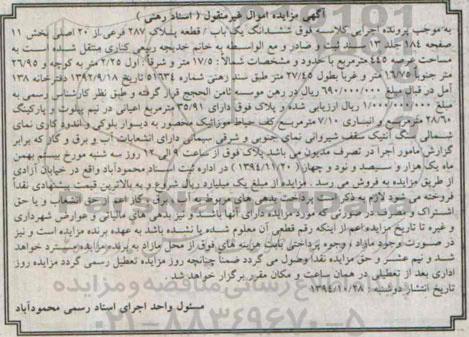 آگهی مزایده اموال غیرمنقول ( اسناد رهنی )
به موجب پرونده اجرایی کلاسه فوق ششدانگ یک باب / قطعه پلاک ۲۸۷ فرعی از ۲۰ اصلی بخش ۱۱
صفحه ۱۸۴ جلد ۱۳ سند ثبت و صادر و مع الواسطه به خانم خدیجه ربیعی کناری منتقل شده است به
مساحت عرصه ۴۴۵ مترمربع با حدود و مشخصات شمالاً : ۱۷/۵ متر و شرقاً : اول ۲/۲۵ متر به کوچه و ۲۶/۹۵
متر جنوباً ۱۶/۷۵ متر و غرباً بطول ۲۷/۴۵ متر طبق سند رهنی شماره ۵۱۶۳۴ تاریخ ۱۳۹۲/۹/۱۸ دفترخانه ۱۳۸
آمل در قبال مبلغ ۶۹۰/۰۰۰/۰۰۰ ریال در رهن موسسه ثامن الحجج قرار گرفته و طبق نظر کارشناس رسمی به
مبلغ ۱/۰۰۰/۰۰۰/۰۰۰ ریال ارزیابی شده و پلاک فوق دارای ۳۵/۹۱ مترمربع اعیانی در نیم پیلوت و پارکینگ
۲۸/۶۰ مترمربع و انباری ۷/۱۰ مترمربع کف حیاط موزائیک محصور به دیوار بلوکی و اندود کاری نمای
شمالی سنگ آنتیک سقف شیروانی نمای جنوبی و شرقی سیمانی دارای انشعابات آب و برق و گاز که برابر
گزارش مامور اجرا در تصرف مدیون می باشد پلاک فوق از ساعت ۹ الی ۱۲ روز سه شنبه مورخ بیستم بهمن
ماه یک هزار و سیصد و نود و چهار ( ۱۳۹۴/۱۱/۲۰ ) در اداره ثبت اسناد محمودآباد واقع در خیابان آزادی
از طریق مزایده به فروش می رسد . مزایده از مبلغ یک میلیارد ریال شروع و به بالاترین قیمت پیشنهادی نقداً
فروخته می شود لازم به ذکر است پرداخت بدهی های مربوطه به آب ، برق ، گاز اعم از حق انشعاب و یا حق
اشتراک و مصرف در صورتی که مورد مزایده دارای آنها باشد و نیز بدهی های مالیاتی و عوارض شهرداری
و غیره تا تاریخ مزایده اعم از اینکه رقم قطعی آن معلوم شده یا نشده باشد به عهده برنده مزایده است و نیز
در صورت وجود مازاد ، وجوه پرداختی بابت هزینه های فوق از محل مازاد به برنده مزایده مسترد خواهد
شد و نیم عشر و حق مزایده نقداً وصول می گردد ضمناً چنانچه روز مزایده تعطیل رسمی گردد مزایده روز
اداری بعد از تعطیلی در همان ساعت و مکان مقرر برگزار خواهد شد .
تاریخ انتشار دوشنبه : ۱۳۹۴/۱۰/۲۸
مسئول واحد اجرای اسناد رسمی محمودآباد
۰۲۱-۸۸۳۴۹۶۷۰-۵